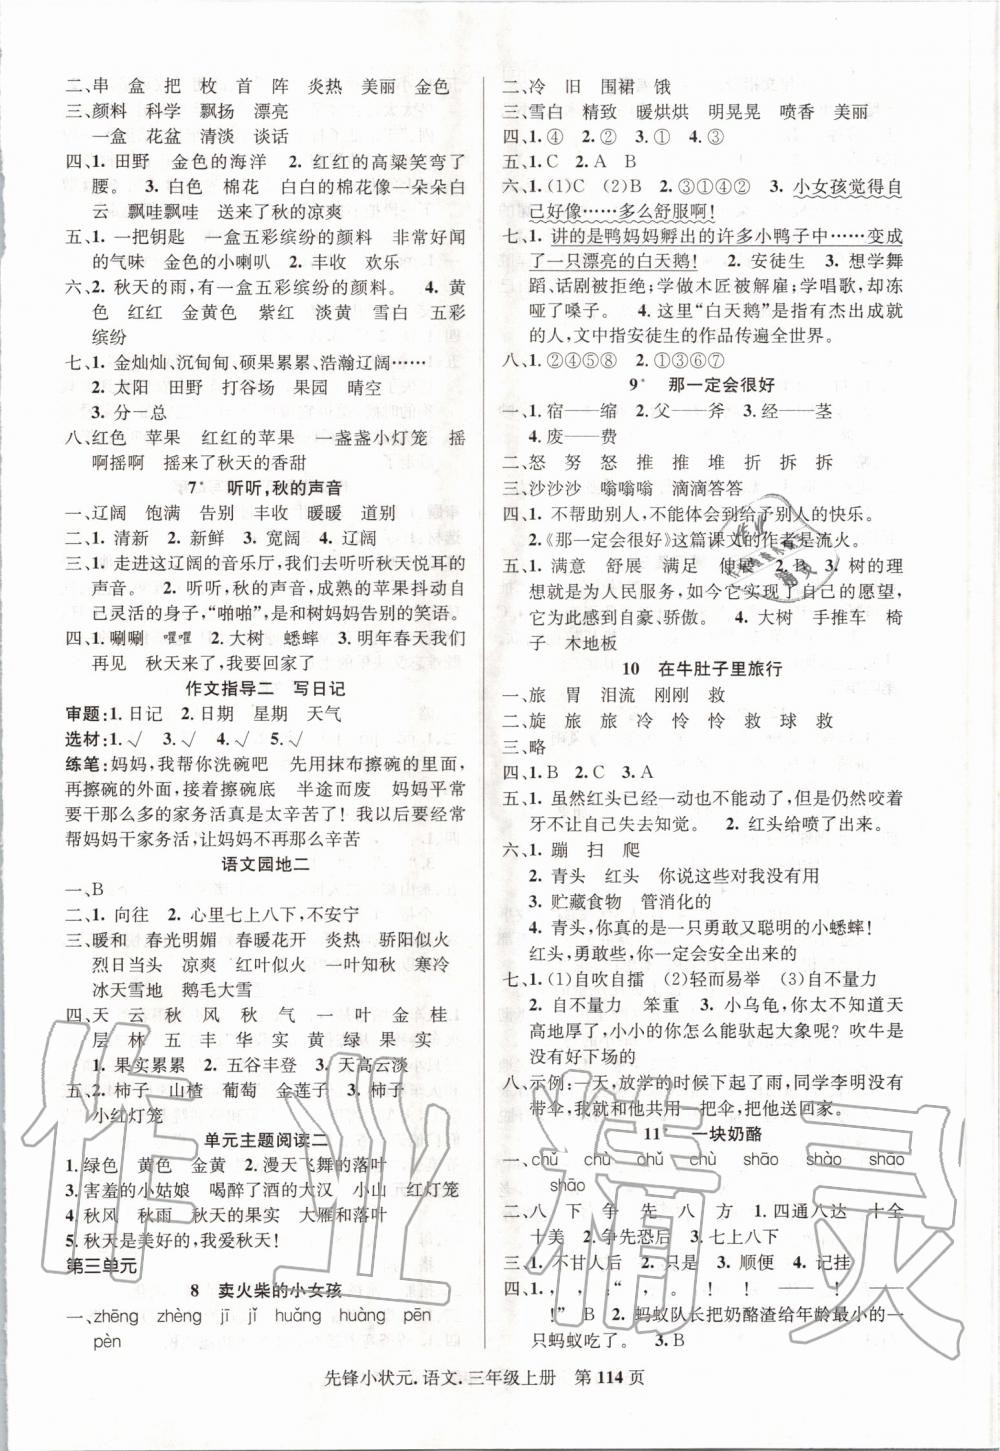 二、串　盒　把　枚　首　阵　炎热　美丽　金色
三、颜料　科学　飘扬　漂亮
一盒　花盆　清淡　谈话
四、1. 田野　金色的海洋　2. 红红的高粱笑弯了
腰。　3. 白色　棉花　白白的棉花像一朵朵白
云　飘哇飘哇　送来了秋的凉爽
五、1. 一把钥匙　一盒五彩缤纷的颜料　非常好闻
的气味　金色的小喇叭　2. 丰收　欢乐
六、2. 秋天的雨,有一盒五彩缤纷的颜料。　4. 黄
色　红红　金黄色　紫红　淡黄　雪白　五彩
缤纷
七、1. 金灿灿、沉甸甸、硕果累累、浩瀚辽阔……
2. 太阳　田野　打谷场　果园　晴空
3. 分—总
八、红色　苹果　红红的苹果　一盏盏小灯笼　摇
啊摇啊　摇来了秋天的香甜
7*　听听,秋的声音
一、辽阔　饱满　告别　丰收　暖暖　道别
二、1. 清新　2. 新鲜　3. 宽阔　4. 辽阔
三、1. 走进这辽阔的音乐厅,我们去听听秋天悦耳的
声音。　2. 听听,秋的声音,成熟的苹果抖动
自己灵活的身子,“啪啪”,是和树妈妈告别的笑语。
四、1. 唰唰　㘗㘗　2. 大树　蟋蟀　3. 明年春天我们
再见　秋天来了,我要回家了
作文指导二　写日记
审题:1. 日记　2. 日期　星期　天气
选材:1. √　3. √　4. √　5. √
练笔:妈妈,我帮你洗碗吧　先用抹布擦碗的里面,
再擦碗的外面,接着擦碗底　半途而废　妈妈平常
要干那么多的家务活真是太辛苦了!　我以后要经常
帮妈妈干家务活,让妈妈不再那么辛苦
语文园地二
一、B
二、1. 向往　2. 心里七上八下,不安宁
三、暖和　春光明媚　春暖花开　炎热　骄阳似火
烈日当头　凉爽　红叶似火　一叶知秋　寒冷
冰天雪地　鹅毛大雪
四、天　云　秋　风　秋　气　一　叶　金　桂
层　林　五　丰　华　实　黄　绿　果　实
1. 果实累累　2. 五谷丰登　3. 天高云淡
五、2. 柿子　山楂　葡萄　金莲子　3. 柿子
小红灯笼
单元主题阅读二
1. 绿色　黄色　金黄　2. 漫天飞舞的落叶
3. 害羞的小姑娘　喝醉了酒的大汉　小山　红灯笼
4. 秋风　秋雨　秋天的果实　大雁和落叶
5. 秋天是美好的,我爱秋天!
第三单元
8　卖火柴的小女孩
一、zhēng　zhèng　jī　jǐ　huǎng　huàng　pēn
pèn
二、冷　旧　围裙　饿
三、雪白　精致　暖烘烘　明晃晃　喷香　美丽
四、1. ④　2. ②　3. ①　4. ③
五、1. C　2. A　B
六、1. (1)C　(2)B　2. ③①④②　3. 小女孩觉得自
己好像……多么舒服啊!
七、1. 讲的是鸭妈妈孵出的许多小鸭子中……变成
了一只漂亮的白天鹅!　2. 安徒生　3. 想学舞
蹈、话剧被拒绝;学做木匠被解雇;学唱歌,却冻
哑了嗓子。　4. 这里“白天鹅”是指有杰出成就
的人,文中指安徒生的作品传遍全世界。
八、1. ②④⑤⑧　2. ①③⑥⑦
9*　那一定会很好
一、1. 宿——缩　2. 父——斧　3. 经——茎
4. 废——费
二、怒　努　怒　推　推　堆　折　拆　拆
三、沙沙沙　嗡嗡嗡　滴滴答答
四、1. 不帮助别人,不能体会到给予别人的快乐。
2.《那一定会很好》这篇课文的作者是流火。
五、1. 满意　舒展　满足　伸展　2. B　3. 树的理
想就是为人民服务,如今它实现了自己的愿望,
它为此感到自豪、骄傲。　4. 大树　手推车　椅
子　木地板
10　在牛肚子里旅行
一、旅　胃　泪流　刚刚　救
二、旋　旅　旅　冷　怜　怜　救　球　救
三、略
四、1. B　2. C　3. A
五、1. 虽然红头已经一动也不能动了,但仍然咬着
牙不让自己失去知觉。　2. 红头给喷了出来。
六、1. 蹦　扫　爬
2. 青头　红头　你说这些对我没有用
3. 贮藏食物　管消化的
4. 青头,你真的是一只勇敢又聪明的小蟋蟀!
红头,勇敢些,你一定会安全出来的
七、1. (1)自吹自擂　(2)轻而易举　(3)自不量力
2. 自不量力　笨重　3. 小乌龟,你太不知道天
高地厚了,小小的你怎么能驮起大象呢?吹牛是
没有好下场的
八、示例:一天,放学的时候下起了雨,同学李明没有
带伞,我就和他共用一把伞,送他回家。
11*　一块奶酪
一、chǔ　chù　chǔ　chù　shāo　shào　shào
shāo
二、八　下　争　先　八　方　1. 四通八达　十全
十美　2. 争先恐后　3. 七上八下
三、1. 不甘人后　2. 犯禁　3. 顺便　4. 记挂
四、1. ,　,　:　“　,　。　!　!　——　!
!”　B　2. 蚂蚁队长把奶酪渣给年龄最小的一
只蚂蚁吃了。　3. B
先锋小状元. 语文. 三年级上册　第 114 页
作业精灵